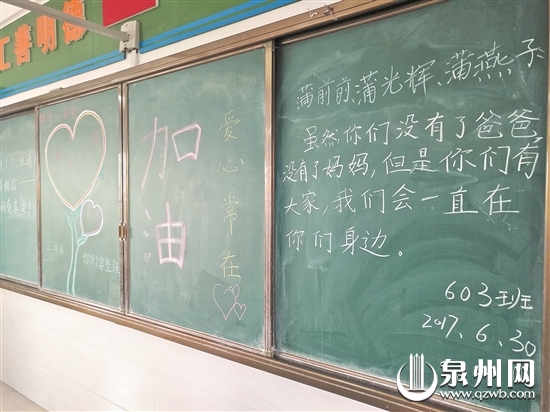 工善明德
加油
爱心常在
你们要坚强
蒲前前、蒲光辉、蒲燕子
虽然你们没有了爸爸,
没有了妈妈,但是你们有
大家,我们会一直在
你们身边。
603班
2017.6.30
泉州网
www.qzwb.com